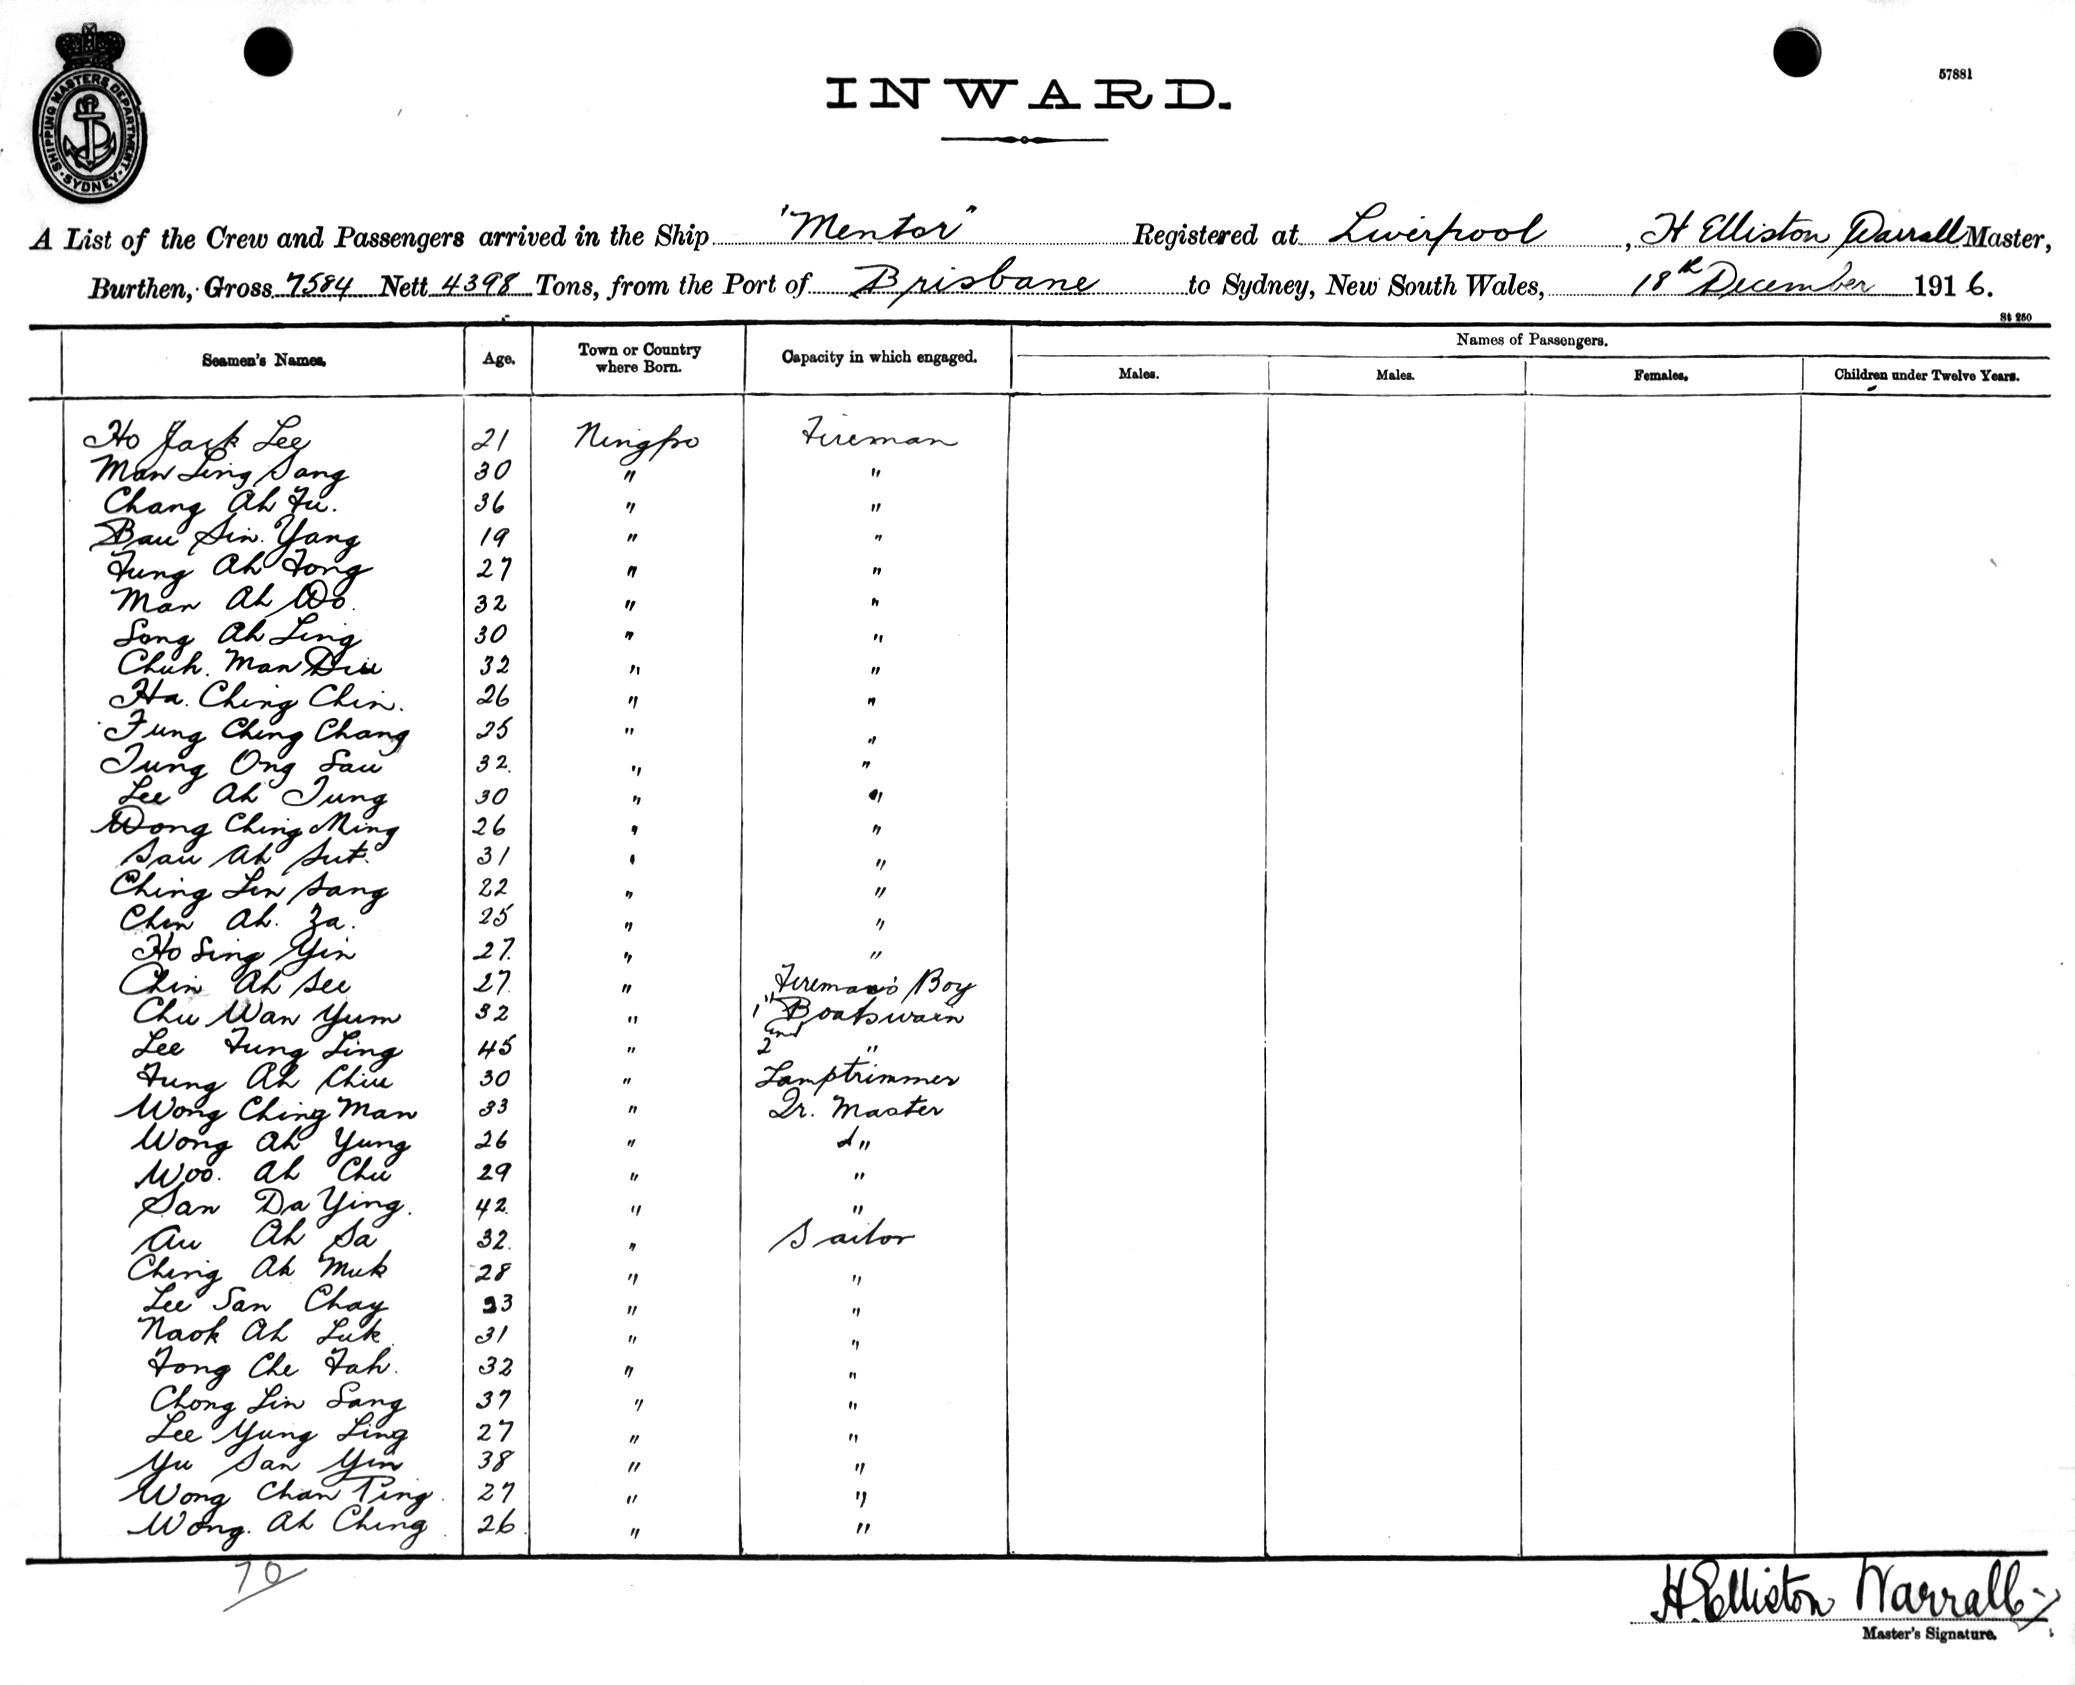 SHIPPING MASTERS DEPARTMENT · SYDNEY ·
57881
INWARD.
A List of the Crew and Passengers arrived in the Ship "Mentor" Registered at Liverpool, H Elliston Warrall Master,
Burthen, Gross 7584 Nett 4398 Tons, from the Port of Brisbane to Sydney, New South Wales, 18th December 1916.
St 250
Seamen's Names. Age. Town or Country where Born. Capacity in which engaged. Names of Passengers.
Males. Males. Females. Children under Twelve Years.
Ho Jack Lee 21 Ningpo Fireman
Man Ling Sang 30 " "
Chang Ah Fu. 36 " "
Bau Sin Yang 19 " "
Fung Ah Fong 27 " "
Man Ah Wo. 32 " "
Song Ah Ling 30 " "
Chuh. Man Diu 32 " "
Ha. Ching Chin. 26 " "
Fung Ching Chang 25 " "
Tung Ong Sau 32. " "
Lee Ah Tung 30 " "
Wong Ching Ming 26 " "
Sau Ah Sut. 31 " "
Ching Lin Sang 22 " "
Chin Ah. Za. 25 " "
Ho Sing Yin 27. " "
Chin Ah See 27. " Fireman's Boy
Chu Wan Yum 32 " 1st Boatswain
Lee Fung Ling 45 " 2nd "
Fung Ah Chiu 30 " Lamptrimmer
Wong Ching Man 33 " Qr. Master
Wong Ah Yung 26 " d "
Woo. Ah Chu 29 " "
San Da Ying. 42 " "
Au Ah Sa 32. " Sailor
Ching Ah Muk 28 " "
Lee San Chay 33 " "
Naok Ah Luk 31 " "
Fong Che Fah. 32 " "
Chong Lin Sang 37 " "
Lee Yung Ling 27 " "
Yu San Yin 38 " "
Wong Chan Ting. 27 " "
Wong. Ah Ching. 26. " "
70
H. Elliston Warrall
Master's Signature.